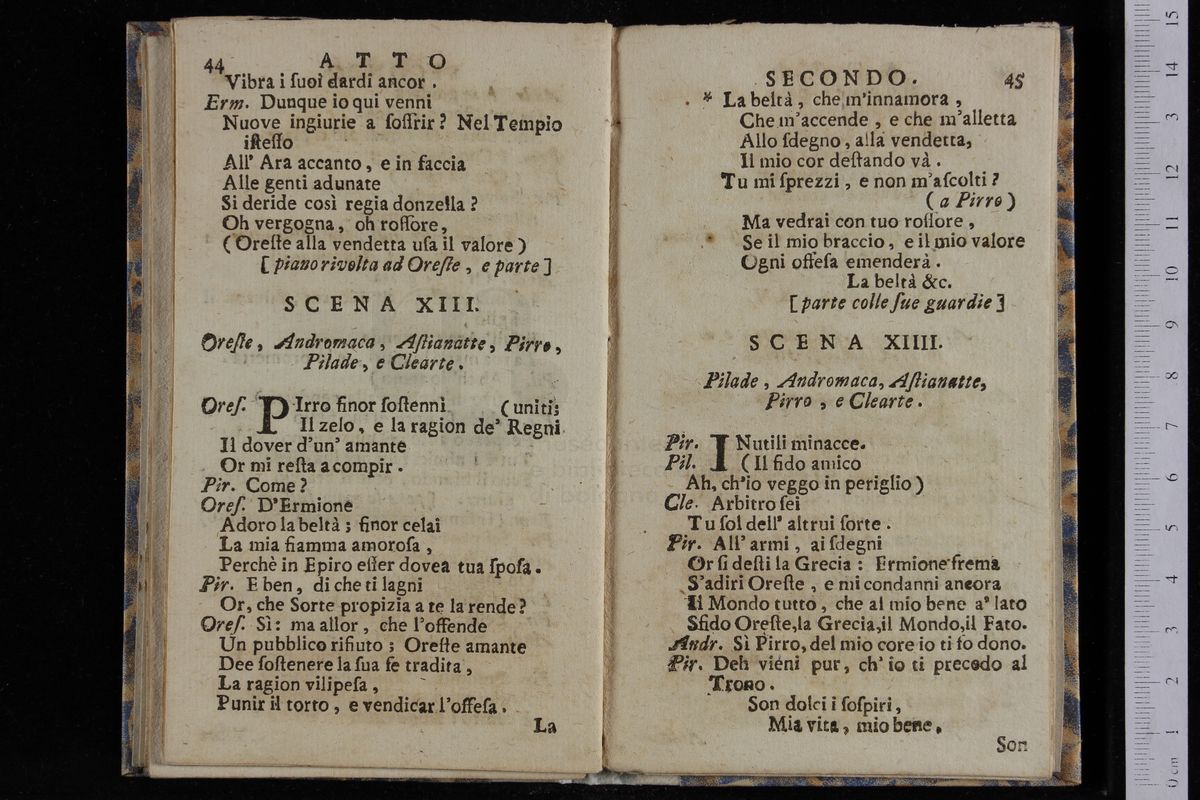 44 ATTO
Vibra i ſuoi dardi ancor .
Erm. Dunque io qui venni
Nuove ingiurie a ſoffrir ? Nel Tempio
iſteſſo
All' Ara accanto , e in faccia
Alle genti adunate
Si deride così regia donzella ?
Oh vergogna , oh roſſore ,
( Oreſte alla vendetta uſa il valore )
[ piano rivolta ad Oreſte , e parte ]
SCENA XIII.
Oreſte , Andromaca , Aſtianatte , Pirro ,
Pilade , e Clearte .
Oreſ. PIrro finor ſoſtenni ( uniti;
Il zelo , e la ragion de' Regni
Il dover d'un' amante
Or mi reſta a compir .
Pir. Come ?
Oreſ. D'Ermione
Adoro la beltà ; finor celai
La mia fiamma amoroſa ,
Perchè in Epiro eſſer dovea tua ſpoſa .
Pir. E ben , di che ti lagni
Or, che Sorte propizia a te la rende ?
Oreſ. Sì : ma allor , che l'offende
Un pubblico rifiuto ; Oreſte amante
Dee ſoſtenere la ſua fe tradita ,
La ragion vilipeſa ,
Punir il torto , e vendicar l'offeſa .
La
SECONDO. 45
* La beltà , che m'innamora ,
Che m'accende , e che m'alletta
Allo ſdegno , alla vendetta,
Il mio cor deſtando và .
Tu mi ſprezzi , e non m'aſcolti ?
( a Pirro )
Ma vedrai con tuo roſſore ,
Se il mio braccio , e il mio valore
Ogni offeſa emenderà .
La beltà &c.
[ parte colle ſue guardie ]
SCENA XIIII.
Pilade , Andromaca, Aſtianatte,
Pirro , e Clearte .
Pir. INutili minacce.
Pil. ( Il fido amico
Ah, ch'io veggo in periglio )
Cle. Arbitro ſei
Tu ſol dell' altrui ſorte .
Pir. All' armi , ai ſdegni
Or ſi deſti la Grecia : Ermione frema
S'adiri Oreſte , e mi condanni ancora
Il Mondo tutto , che al mio bene a' lato
Sfido Oreſte,la Grecia,il Mondo,il Fato.
Andr. Sì Pirro, del mio core io ti fo dono.
Pir. Deh vieni pur , ch' io ti precedo al
Trono .
Son dolci i ſoſpiri ,
Mia vita , mio bene ,
Son